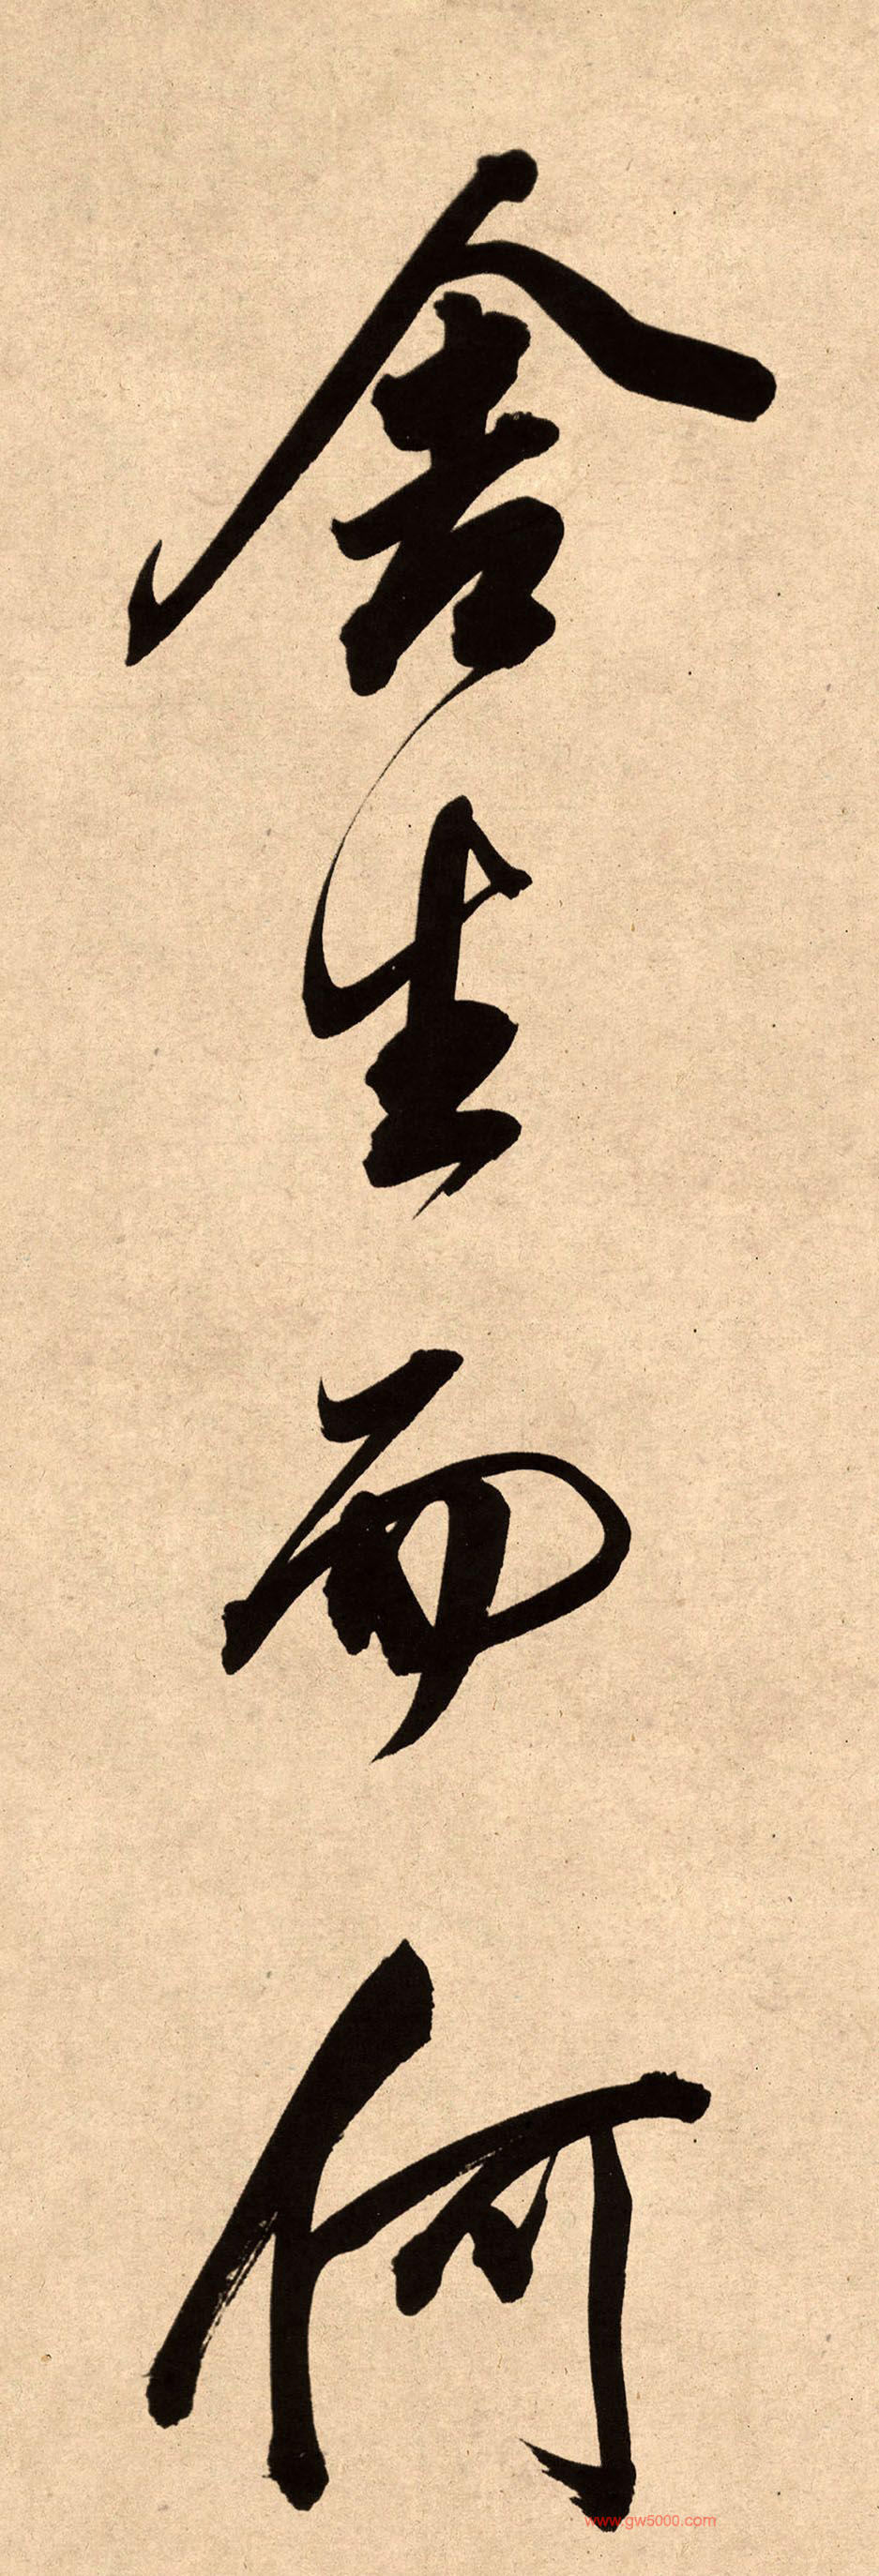 舍生而何
www.gw5000.com